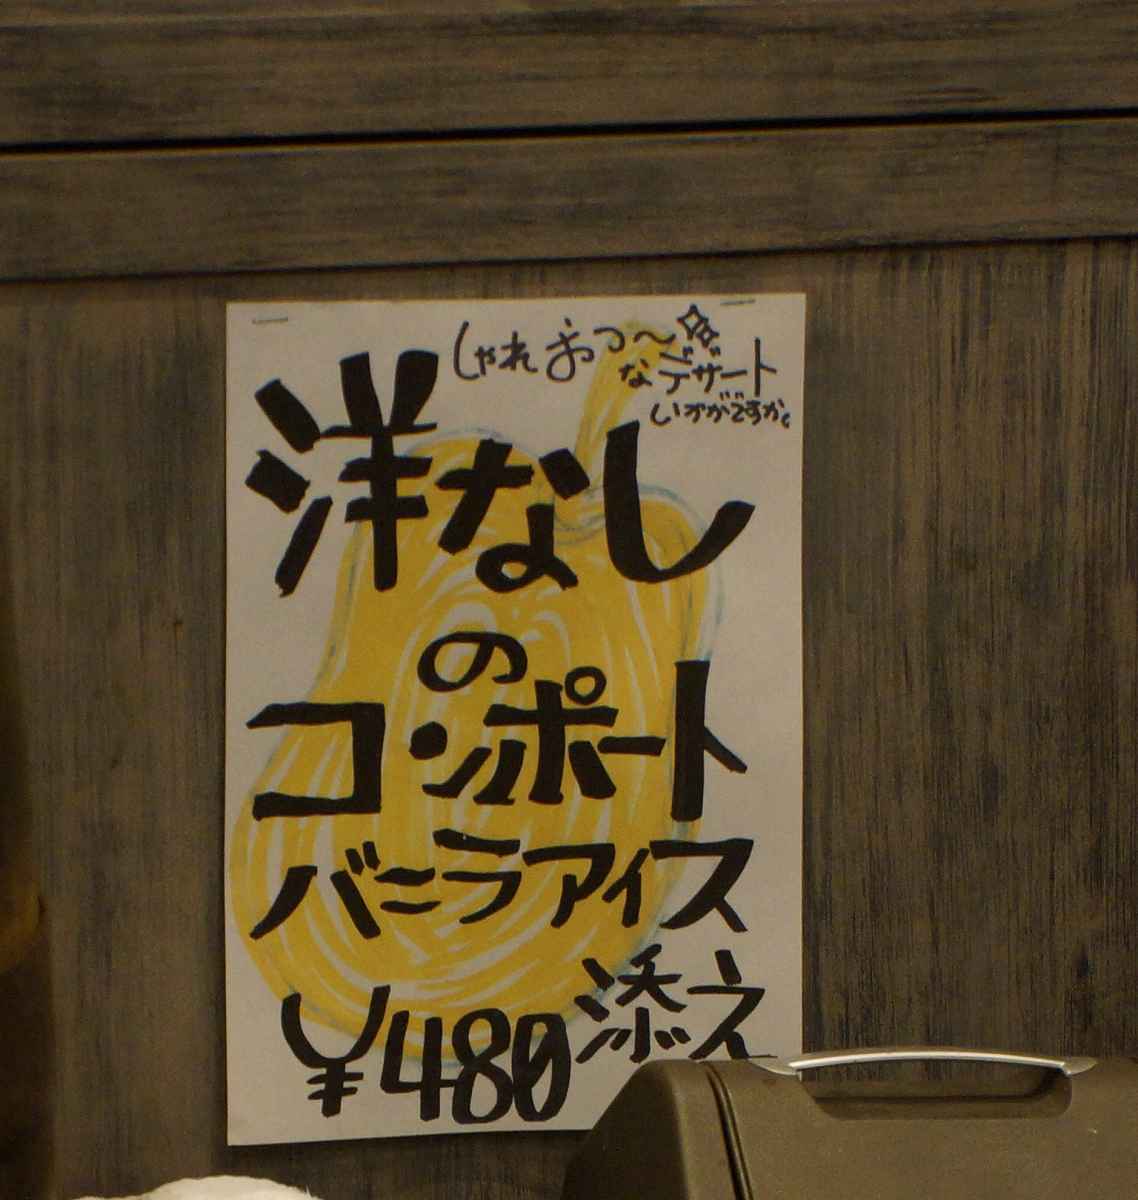 しゃれおつ〜
なデザート
いかがですか。
洋なし
の
コンポート
バニラアイス
添え
¥480